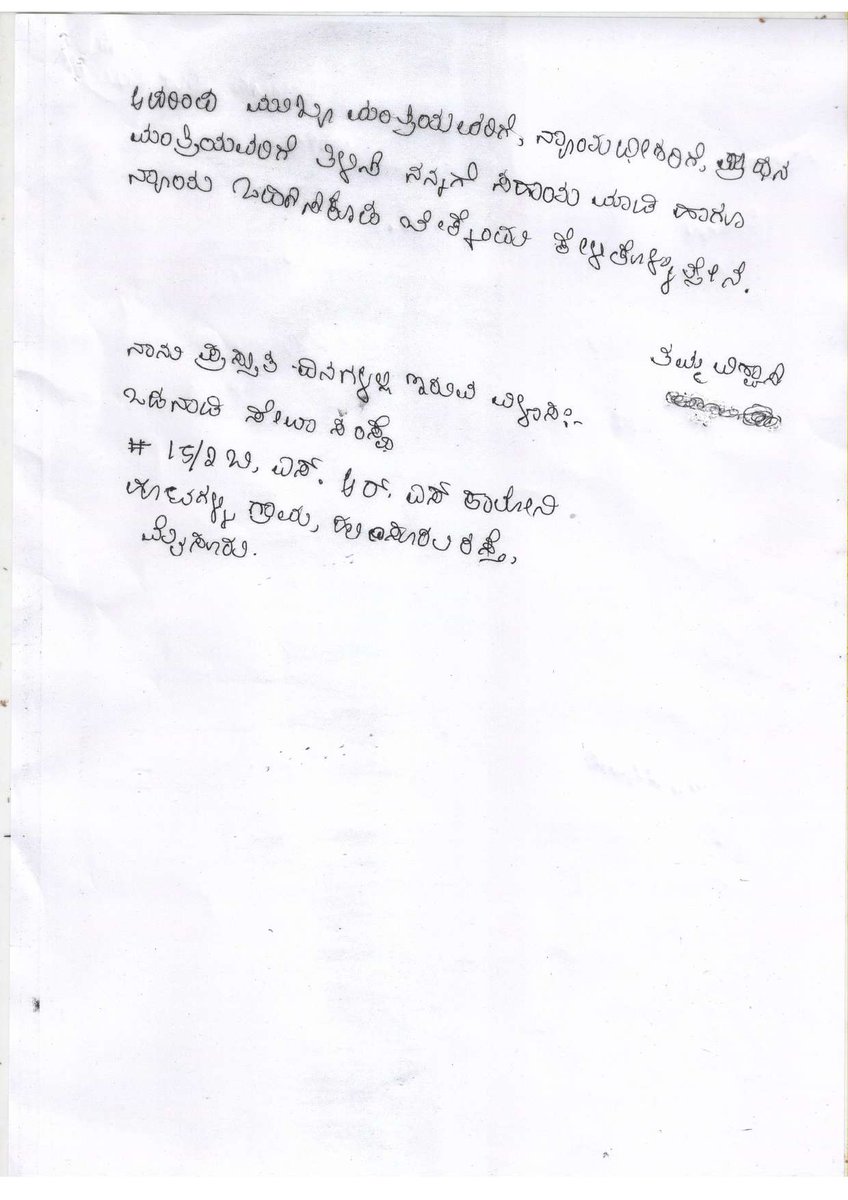 ಆದರಿಂದ ಮುಖ್ಯ ಮಂತ್ರಿಯವರಿಗೆ, ನ್ಯಾಯಧೀಶರಿಗೆ, ಪ್ರಧಾನ
ಮಂತ್ರಿಯವರಿಗೆ ತಿಳಿಸಿ ನನ್ನಗೆ ಸಹಾಯ ಮಾಡಿ ಹಾಗೂ
ನ್ಯಾಯ ಒದಗಿಸಿಕೊಡಿ ಕೇಳಿಕೊಳ್ಳುತ್ತೇನೆ.
ತಮ್ಮ ವಿಶ್ವಾಸಿ
ನಾನು ಪ್ರಸ್ತುತ ದಿನಗಳಲ್ಲಿ ಇರುವ ವಿಳಾಸ:-
ಒಡನಾಡಿ ಸೇವಾ ಸಂಸ್ಥೆ
# 15/2 ಬಿ, ಎಸ್. ಆರ್. ಎಸ್ ಕಾಲೋನಿ
ಗ್ರಾಮ, ಹುಣಸೂರು ರಸ್ತೆ,
ಮೈಸೂರು.